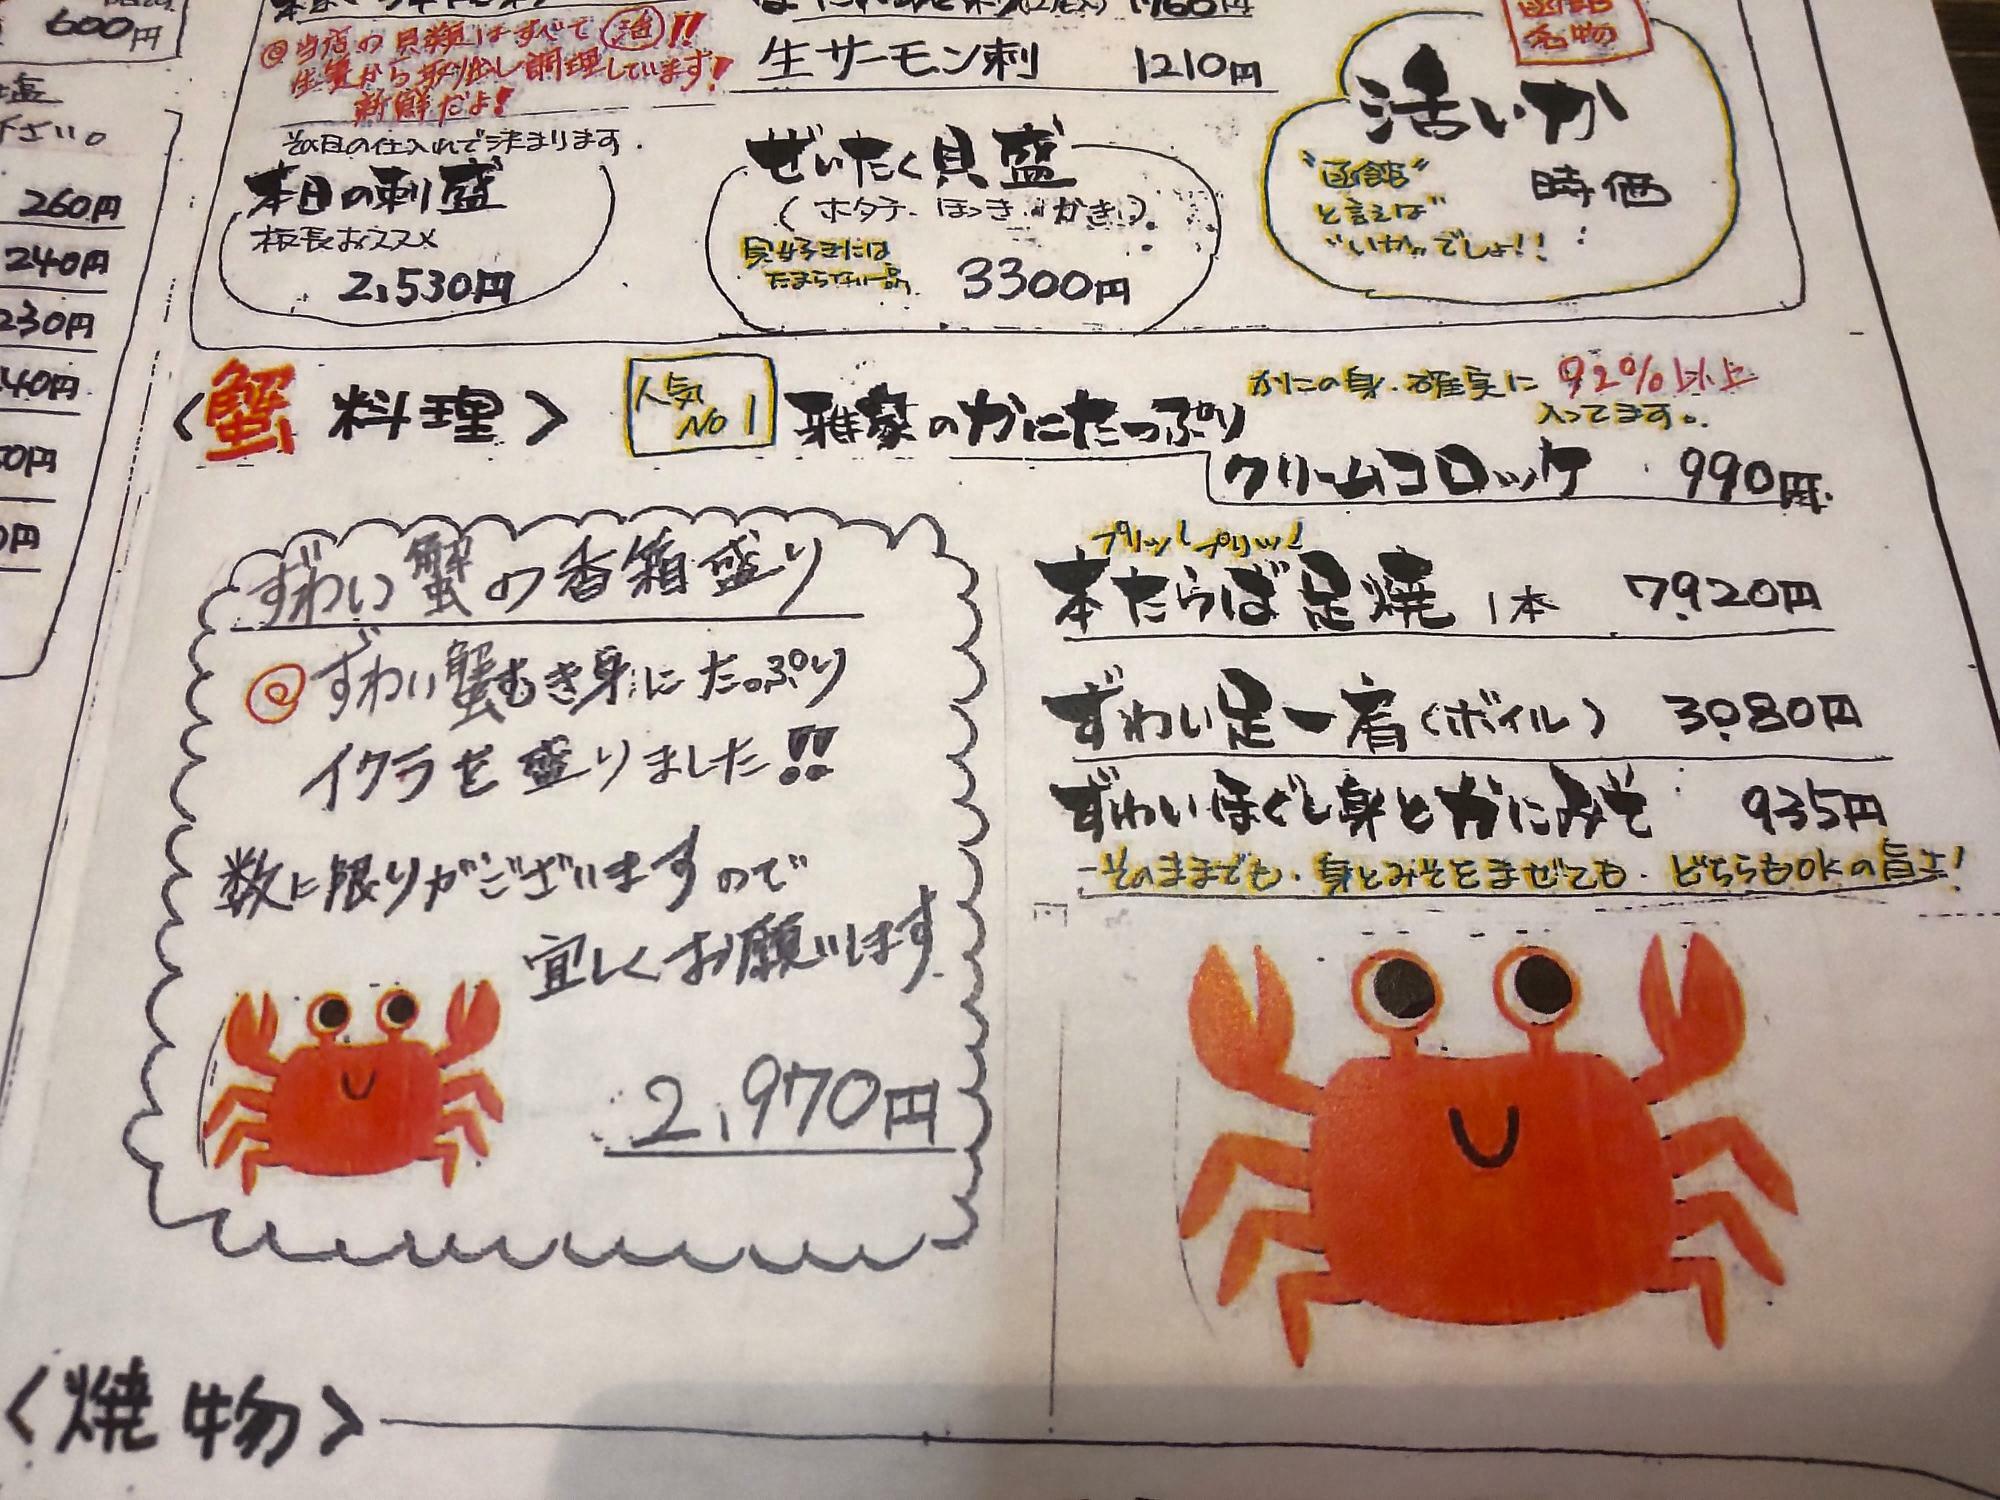 600円
下さい。
260円
240円
230円
40円
0円
0円
◎当店の貝類はすべて活!!
生簀から取出し調理しています!
新鮮だよ!
1760円
生サーモン刺 1210円
その日の仕入れで決まります.
本日の刺盛
板長おススメ
2,530円
ぜいたく貝盛
(ホタテ.ほっき.かき)
貝好きには
たまらない一品
3300円
函館
名物
活いか
時価
"函館"
と言えば
"いか"でしょ!!
<蟹料理>
人気
No1
雅家のかにたっぷり
クリームコロッケ 990円
かにの身.確実に92%以上
入ってます。
ずわい蟹の香箱盛り
◎ずわい蟹むき身にたっぷり
イクラを盛りました!!
数に限りがございますので
宜しくお願いします
2,970円
プリップリッ!
本たらば足焼 1本 7920円
ずわい足一肩(ボイル) 3080円
ずわいほぐし身とかにみそ 935円
そのままでも.身とみそをまぜても.どちらもOKの旨さ!
<焼物>